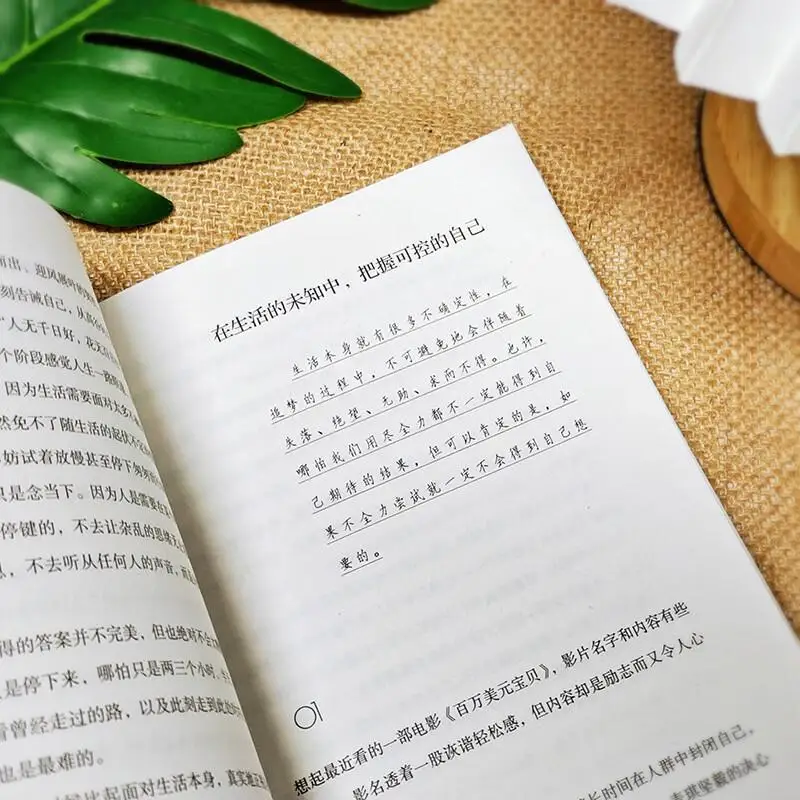 出、迎风展
刻告诫自己，从
“人无千日好，花无
个阶段感觉人生一
因为生活需要面对太多
然免不了随生活的起伏
妨试着放慢甚至停下匆匆
只是念当下。因为人是需要在
停键的，不去让杂乱的思绪
，不去听从任何人的声音，而
得的答案并不完美，但也绝对不会
是停下来，哪怕只是两三个小时，
看曾经走过的路，以及此刻走到此处
也是最难的。
比起面对生活本身，真实地
在生活的未知中，把握可控的自己
生活本身就有很多不确定性，在
追梦的过程中，不可避免地会伴随着
失落、绝望、无助、求而不得。也许，
哪怕我们用尽全力都不一定能得到自
己期待的结果，但可以肯定的是，如
果不全力尝试就一定不会得到自己想
要的。
01
想起最近看的一部电影《百万美元宝贝》，影片名字和内容有些
影名透着一股诙谐轻松感，但内容却是励志而又令人心
长时间在人群中封闭自己，
琪坚毅的决心